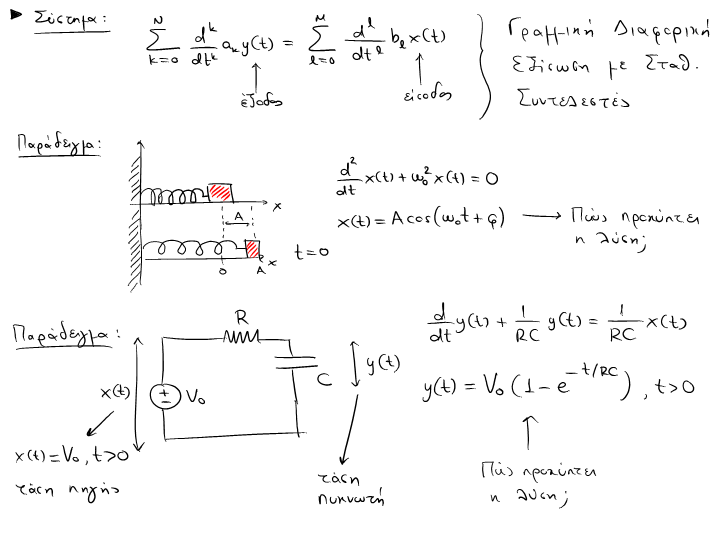 ► Σύστημα:
\sum_{k=0}^{N} \frac{d^k}{dt^k} a_k y(t) = \sum_{l=0}^{M} \frac{d^l}{dt^l} b_l x(t)
έξοδος
είσοδος
Γραμμική Διαφορική
Εξίσωση με Σταθ.
Συντελεστές
Παράδειγμα:
x
A
x
0
A
t=0
\frac{d^2}{dt} x(t) + ω_0^2 x(t) = 0
x(t) = A cos(ω_0 t + φ) → Πώς προκύπτει
η λύση;
Παράδειγμα:
R
C
V_0
x(t)
y(t)
x(t)=V_0, t>0
τάση πηγής
τάση
πυκνωτή
\frac{d}{dt} y(t) + \frac{1}{RC} y(t) = \frac{1}{RC} x(t)
y(t) = V_0 (1 - e^{-t/RC}), t>0
Πώς προκύπτει
η λύση;